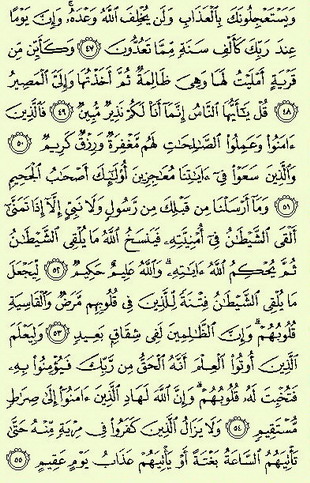 وَيَسْتَعْجِلُونَكَ بِٱلْعَذَابِ وَلَن يُخْلِفَ ٱللَّهُ وَعْدَهُۥ ۚ وَإِنَّ يَوْمًا
عِندَ رَبِّكَ كَأَلْفِ سَنَةٍ مِّمَّا تَعُدُّونَ ٤٧ وَكَأَيِّن مِّن
قَرْيَةٍ أَمْلَيْتُ لَهَا وَهِىَ ظَالِمَةٌ ثُمَّ أَخَذْتُهَا وَإِلَىَّ ٱلْمَصِيرُ
٤٨ قُلْ يَٰٓأَيُّهَا ٱلنَّاسُ إِنَّمَآ أَنَا۠ لَكُمْ نَذِيرٌ مُّبِينٌ ٤٩ فَٱلَّذِينَ
ءَامَنُوا۟ وَعَمِلُوا۟ ٱلصَّٰلِحَٰتِ لَهُم مَّغْفِرَةٌ وَرِزْقٌ كَرِيمٌ ٥٠
وَٱلَّذِينَ سَعَوْا۟ فِىٓ ءَايَٰتِنَا مُعَٰجِزِينَ أُو۟لَٰٓئِكَ أَصْحَٰبُ ٱلْجَحِيمِ
٥١ وَمَآ أَرْسَلْنَا مِن قَبْلِكَ مِن رَّسُولٍ وَلَا نَبِىٍّ إِلَّآ إِذَا تَمَنَّىٰٓ
أَلْقَى ٱلشَّيْطَٰنُ فِىٓ أُمْنِيَّتِهِۦ فَيَنسَخُ ٱللَّهُ مَا يُلْقِى ٱلشَّيْطَٰنُ
ثُمَّ يُحْكِمُ ٱللَّهُ ءَايَٰتِهِۦ ۗ وَٱللَّهُ عَلِيمٌ حَكِيمٌ ٥٢ لِّيَجْعَلَ
مَا يُلْقِى ٱلشَّيْطَٰنُ فِتْنَةً لِّلَّذِينَ فِى قُلُوبِهِم مَّرَضٌ وَٱلْقَاسِيَةِ
قُلُوبُهُمْ ۗ وَإِنَّ ٱلظَّٰلِمِينَ لَفِى شِقَاقٍۭ بَعِيدٍ ٥٣ وَلِيَعْلَمَ
ٱلَّذِينَ أُوتُوا۟ ٱلْعِلْمَ أَنَّهُ ٱلْحَقُّ مِن رَّبِّكَ فَيُؤْمِنُوا۟ بِهِۦ
فَتُخْبِتَ لَهُۥ قُلُوبُهُمْ ۗ وَإِنَّ ٱللَّهَ لَهَادِ ٱلَّذِينَ ءَامَنُوٓا۟ إِلَىٰ صِرَٰطٍ
مُّسْتَقِيمٍ ٥٤ وَلَا يَزَالُ ٱلَّذِينَ كَفَرُوا۟ فِى مِرْيَةٍ مِّنْهُ حَتَّىٰ
تَأْتِيَهُمُ ٱلسَّاعَةُ بَغْتَةً أَوْ يَأْتِيَهُمْ عَذَابُ يَوْمٍ عَقِيمٍ ٥٥